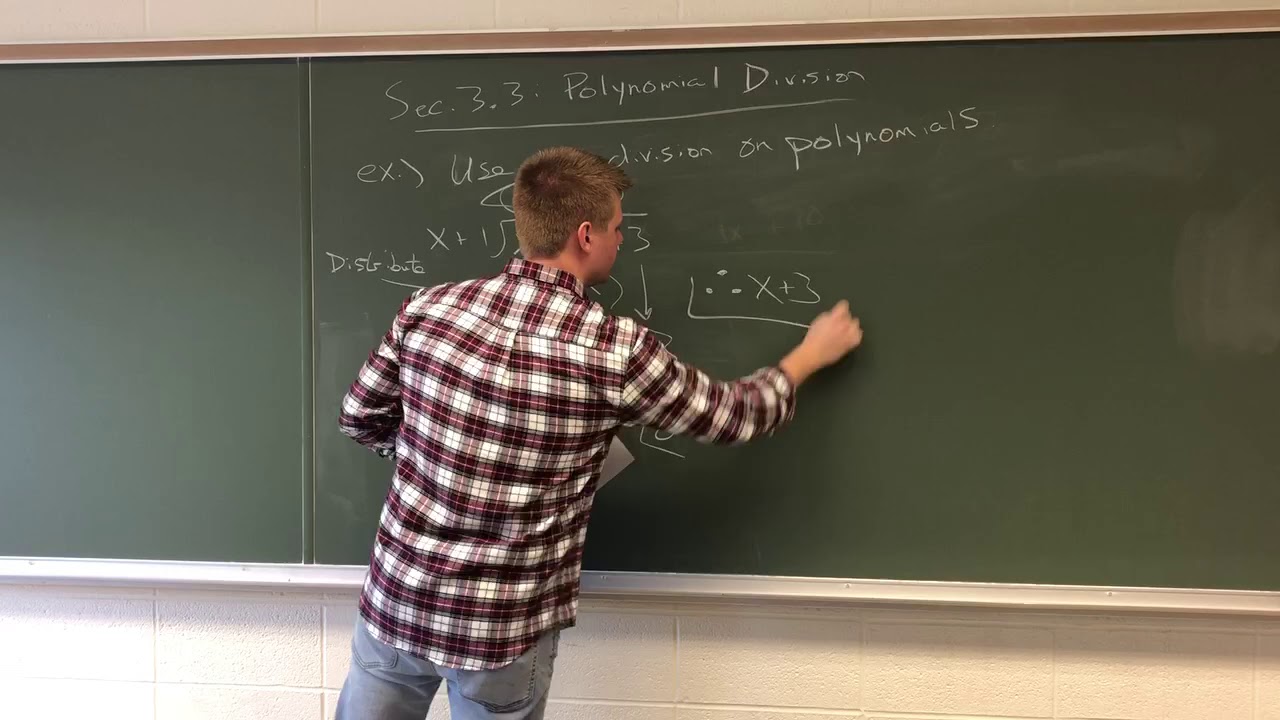 Sec. 3.3: Polynomial Division
ex.) Use division on polynomials
x+1) 3
Distribute
∴ x+3